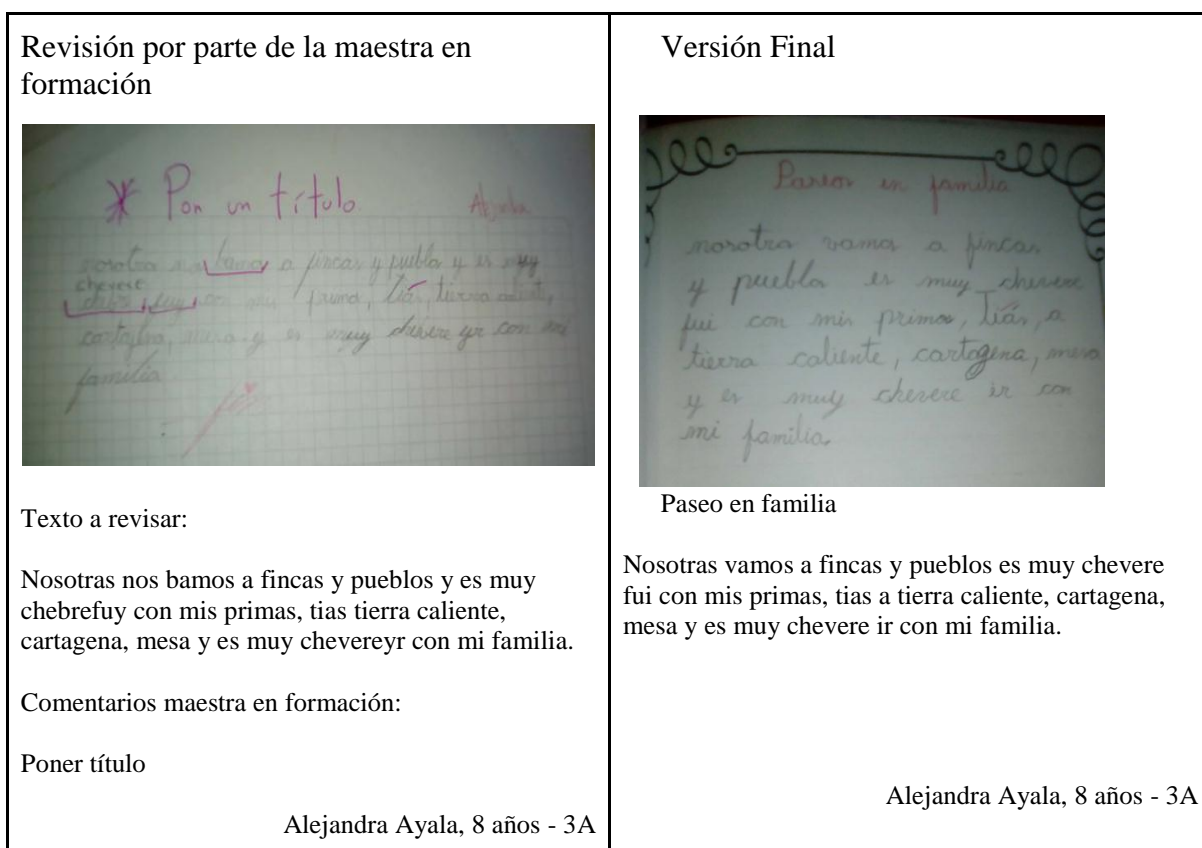 Revisión por parte de la maestra en
formación
* Pon un título
nosotras nos bamos a fincas y pueblos y es muy
chevere
con mis primas, tiás, tierra caliente,
cartagena, mesa y es muy chevere yr con mi
familia
Texto a revisar:
Nosotras nos bamos a fincas y pueblos y es muy
chebrefuy con mis primas, tias tierra caliente,
cartagena, mesa y es muy chevereyr con mi familia.
Comentarios maestra en formación:
Poner título
Alejandra Ayala, 8 años - 3A
Versión Final
en familia
nosotras vamos a fincas
y pueblos es muy chevere
fui con mis primas, tiás, a
tierra caliente, cartagena, mesa
y es muy chevere ir con
mi familia
Paseo en familia
Nosotras vamos a fincas y pueblos es muy chevere
fui con mis primas, tias a tierra caliente, cartagena,
mesa y es muy chevere ir con mi familia.
Alejandra Ayala, 8 años - 3A